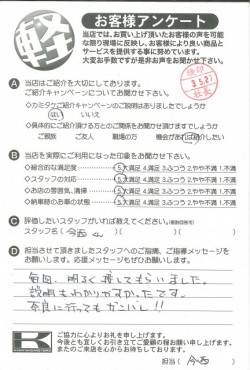 軽
お客様アンケート
当店では、お買い上げ頂いたお客様の声を可能
な限り現場に反映し、お客様により良い商品と
サービスを提供する事に努めています。
大変お手数ですが是非お声をお聞かせ下さい。
A 当店はご紹介を大切にしております。
ご紹介キャンペーンについてお聞かせ下さい。
◇カミタケご紹介キャンペーンのご説明はありましたでしょうか
はい いいえ
◇具体的にご紹介頂ける方とのご関係をお聞かせ頂けますでしょうか
ご親族 ご友人 職場の方 機会があれば
B 当店を実際にご利用になった印象をお聞かせ下さい。
◇総合的な満足度 5.大満足 4.満足 3.ふつう 2.やや不満 1.不満
◇スタッフの対応 5.大満足 4.満足 3.ふつう 2.やや不満 1.不満
◇お店の雰囲気、清掃 5.大満足 4.満足 3.ふつう 2.やや不満 1.不満
◇納車時のお車の状態 5.大満足 4.満足 3.ふつう 2.やや不満 1.不満
C 評価したいスタッフがいれば教えてください。
スタッフ名( 今西くん )
D 担当させて頂きましたスタッフへのご指摘、ご指導メッセージを
お願いします。応援メッセージもぜひお願いします。
毎回、明るく接してもらいました。
説明もわかりやすかったです。
奈良に行ってもガンバレ!!
K
ご協力に心よりお礼を申し上げます。
今後とも宜しくお引き立てご愛顧の程お願い申し上げます。
またのご来店を心からお待ちしております。
担当( 今西 )